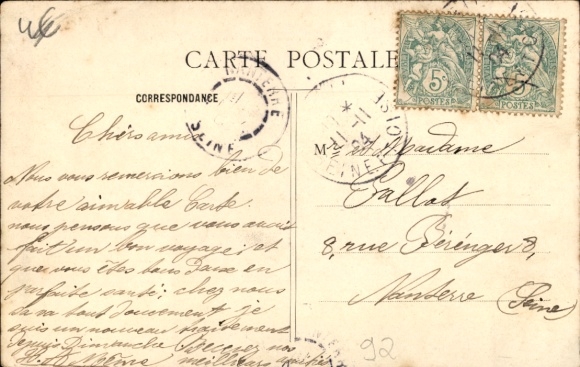 CARTE POSTALE
CORRESPONDANCE
NANTERRE
SEINE
5c
POSTES
5c
POSTES
11-11
04
SEINE
Chers amis
Nous vous remercions bien de
votre aimable Carte
nous pensons que vous avez
fait un bon voyage; et
que vous êtes tous deux en
parfaite santé; chez nous
ça va tout doucement je
suis un nouveau traitement
depuis Dimanche Recevez nos
meilleures amitiés
M. et Madame
Callot
8, rue Bérénger 8,
Nanterre
(Seine)
92